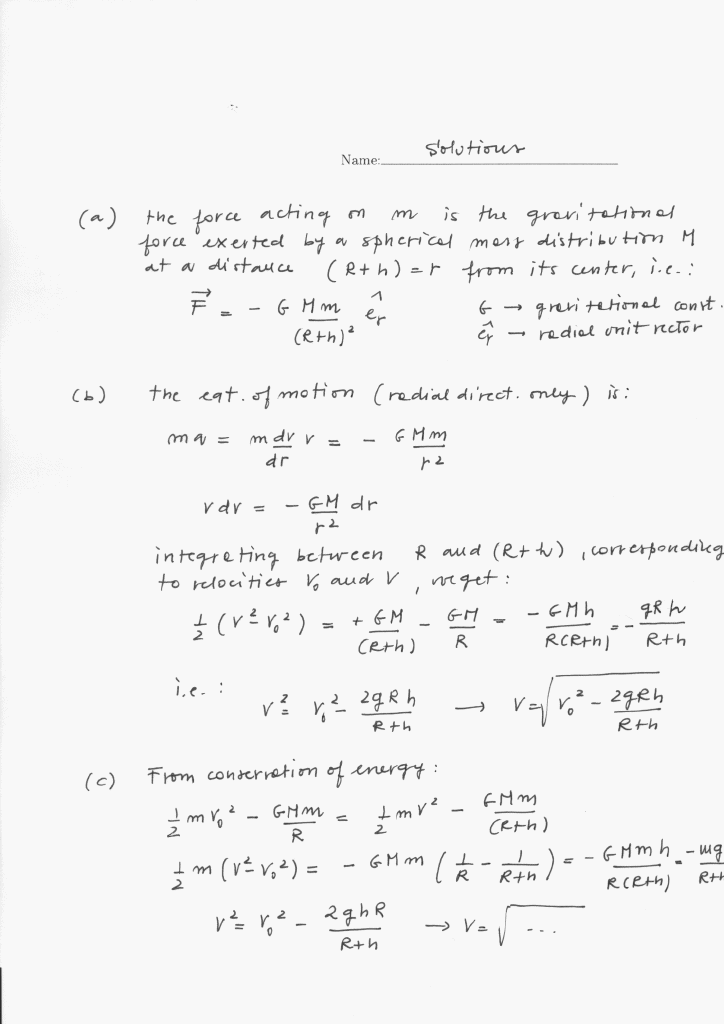 Solutions
Name:
(a) the force acting on m is the gravitational
force exerted by a spherical mass distribution M
at a distance (R+h)=r from its center, i.e.:
F⃗ = - G Mm/(R+h)² ê_r    G → gravitational const.
ê_r → radial unit vector
(b) the eqt. of motion (radial direct. only) is:
ma = m dv/dr v = - GMm/r²
vdv = - GM/r² dr
integrating between R and (R+h), corresponding
to velocities V₀ and V, we get:
½ (v² - v₀²) = + GM/(R+h) - GM/R = - GMh/R(R+h) = - gRh/R+h
i.e.: v² = v₀² - 2gRh/R+h → V = √(v₀² - 2gRh/R+h)
(c) From conservation of energy:
½ m v₀² - GMm/R = ½ m v² - GMm/(R+h)
½ m (v² - v₀²) = - GMm (1/R - 1/R+h) = - GMmh/R(R+h) = - mg
v² = v₀² - 2ghR/R+h → V = √...